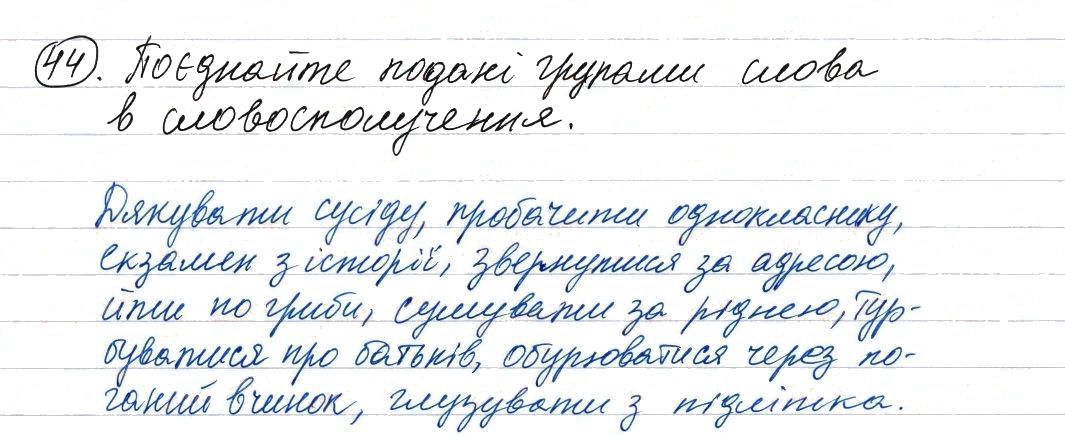 44. Поєднайте подані групами слова
в словосполучення.
Дякувати сусіду, пробачити однокласнику,
екзамен з історії, звернутися за адресою,
йти по гриби, сумувати за ріднею, тур-
буватися про батьків, обурюватися через по-
ганий вчинок, глузувати з підлітка.